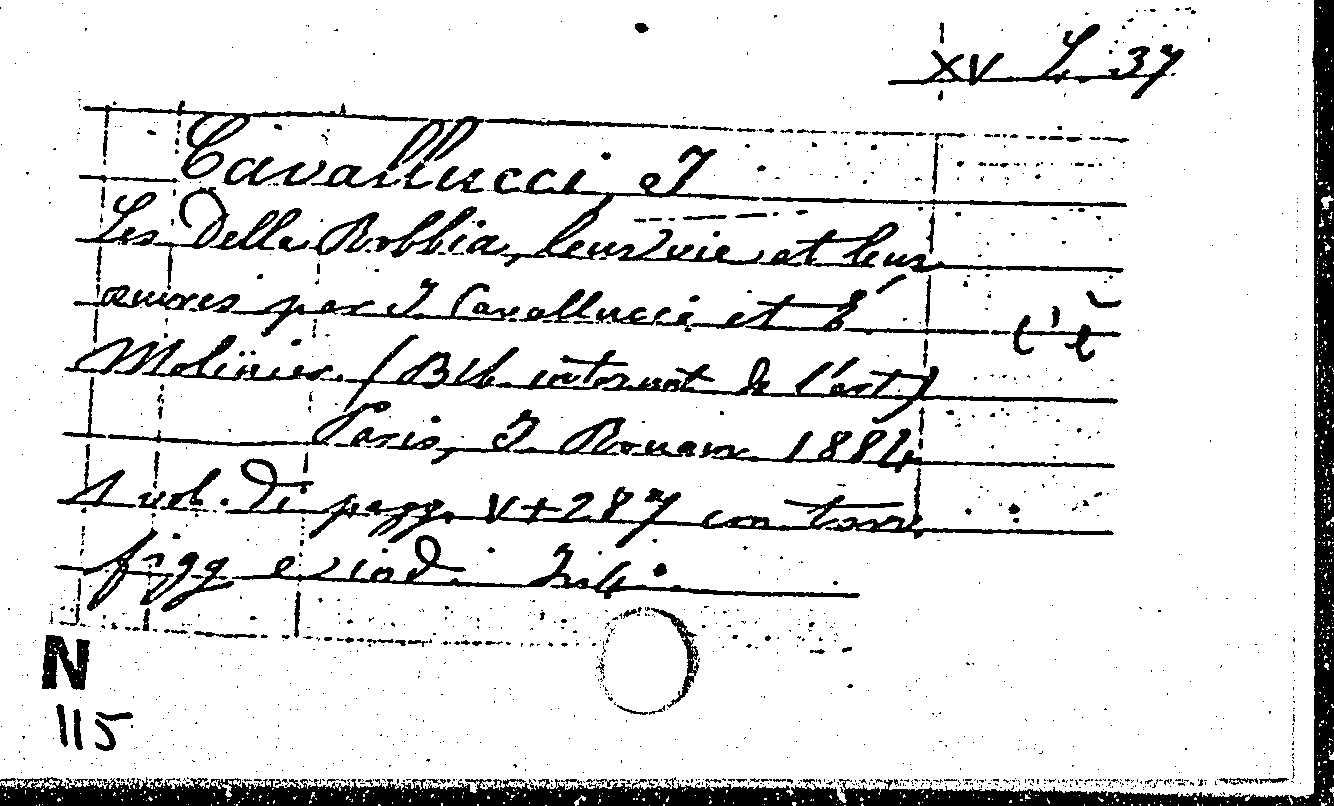 XV L. 37
Cavallucci, J
Les Della Robbia, leur vie et leur
œuvres par J Cavallucci et É.
Molinier. (Bib. internat de l'art)
Paris, J. Rouam 1884
1 vol. di pagg. V+287 con tavv.
figg e ind. In 4°.
N
115